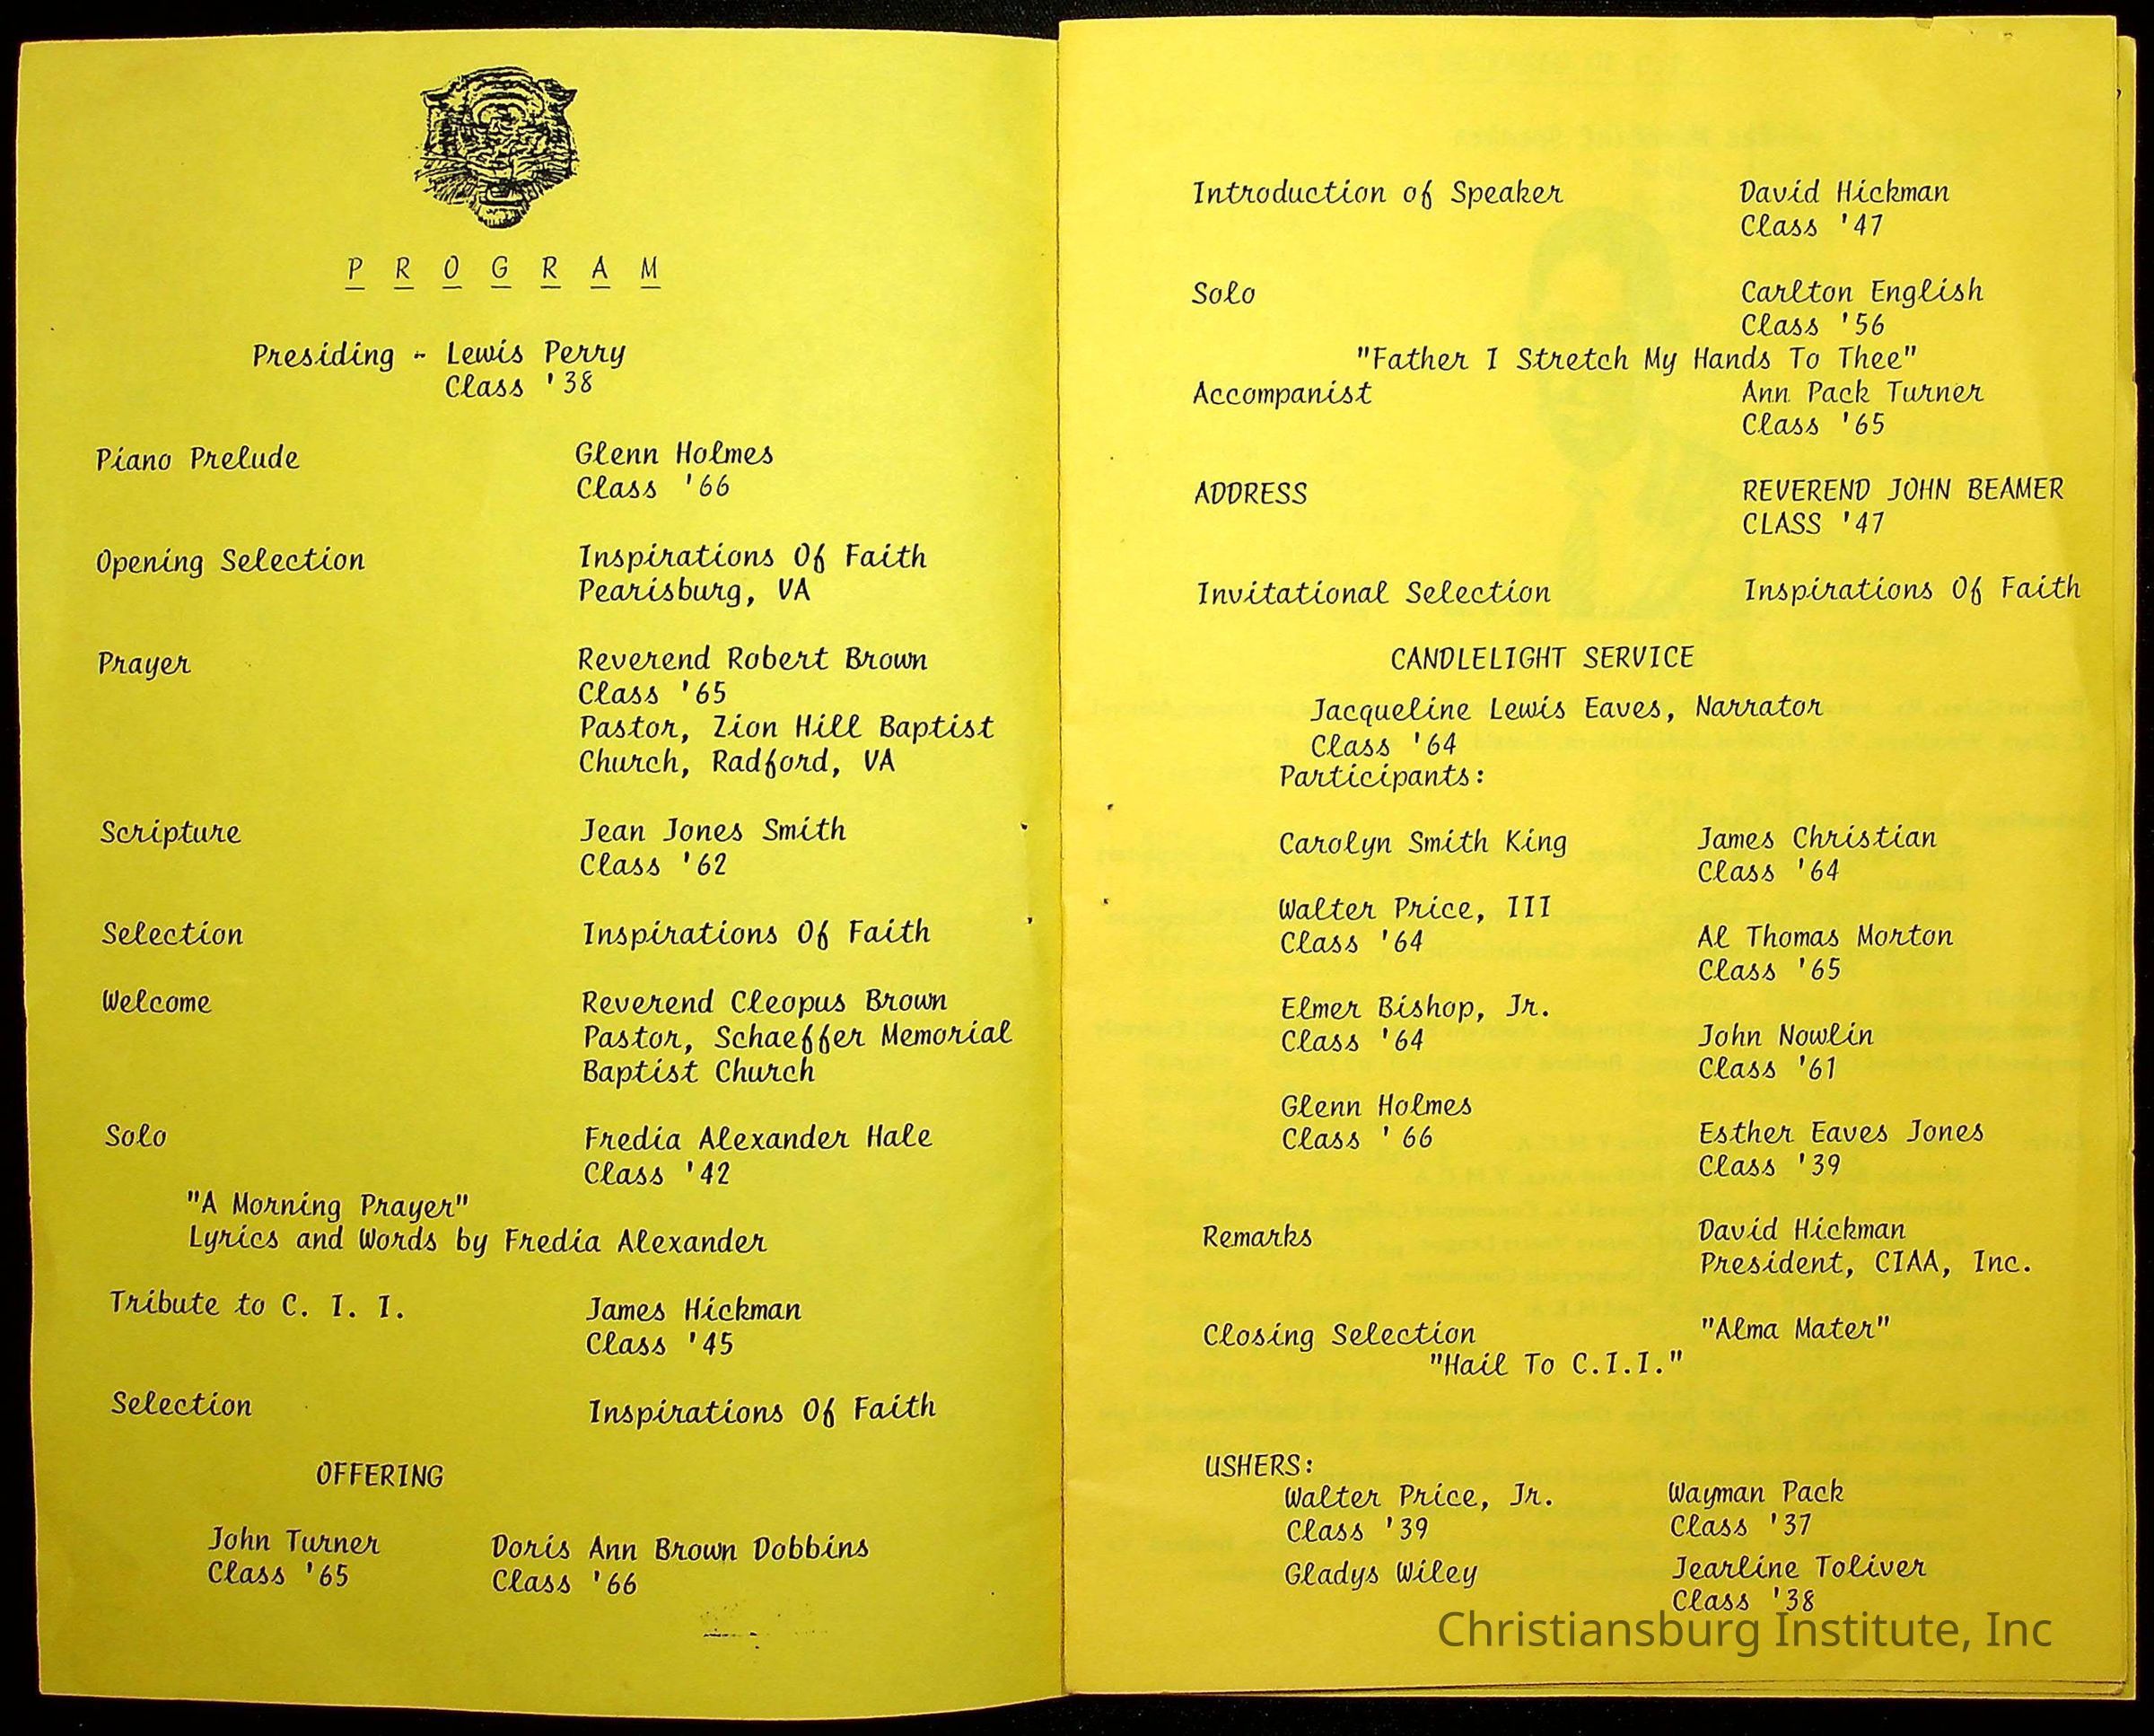 P R O G R A M
Presiding - Lewis Perry
Class '38
Piano Prelude Glenn Holmes
Class '66
Opening Selection Inspirations Of Faith
Pearisburg, VA
Prayer Reverend Robert Brown
Class '65
Pastor, Zion Hill Baptist
Church, Radford, VA
Scripture Jean Jones Smith
Class '62
Selection Inspirations Of Faith
Welcome Reverend Cleopus Brown
Pastor, Schaeffer Memorial
Baptist Church
Solo Fredia Alexander Hale
Class '42
"A Morning Prayer"
Lyrics and Words by Fredia Alexander
Tribute to C. I. I. James Hickman
Class '45
Selection Inspirations Of Faith
OFFERING
John Turner Doris Ann Brown Dobbins
Class '65 Class '66
Introduction of Speaker David Hickman
Class '47
Solo Carlton English
Class '56
"Father I Stretch My Hands To Thee"
Accompanist Ann Pack Turner
Class '65
ADDRESS REVEREND JOHN BEAMER
CLASS '47
Invitational Selection Inspirations Of Faith
CANDLELIGHT SERVICE
Jacqueline Lewis Eaves, Narrator
Class '64
Participants:
Carolyn Smith King James Christian
Class '64
Walter Price, III
Class '64 Al Thomas Morton
Class '65
Elmer Bishop, Jr.
Class '64 John Nowlin
Class '61
Glenn Holmes
Class ' 66 Esther Eaves Jones
Class '39
Remarks David Hickman
President, CIAA, Inc.
Closing Selection "Alma Mater"
"Hail To C.I.I."
USHERS:
Walter Price, Jr. Wayman Pack
Class '39 Class '37
Gladys Wiley Jearline Toliver
Class '38
Christiansburg Institute, Inc